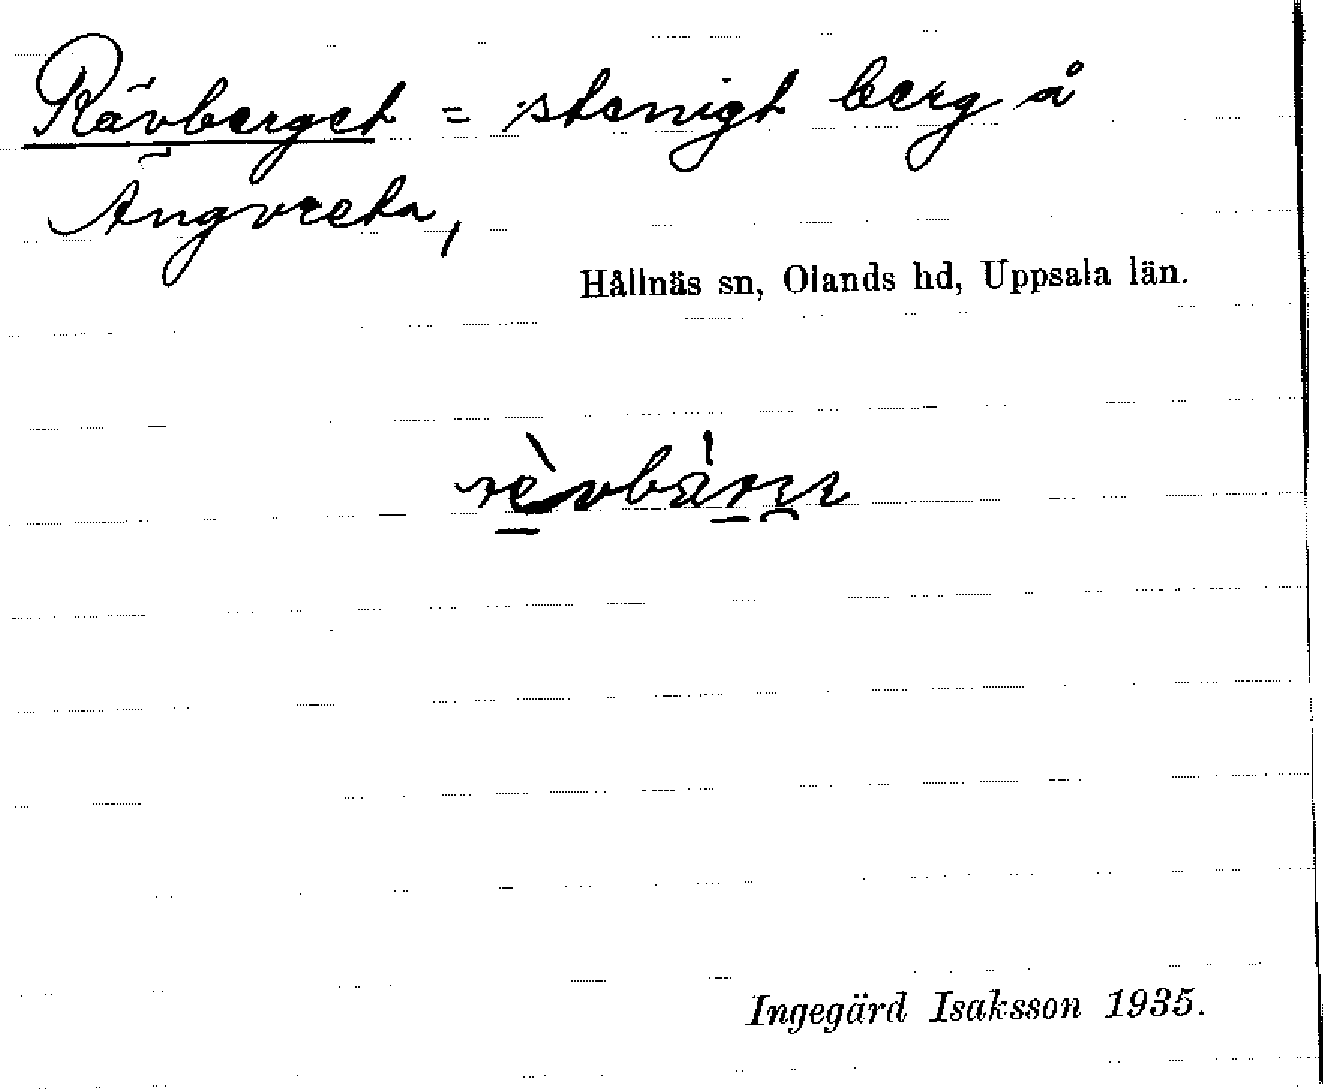 Rävberget = stenigt berg å
Ängvreta,
Hållnäs sn, Olands hd, Uppsala län.
Ingegärd Isaksson 1935.